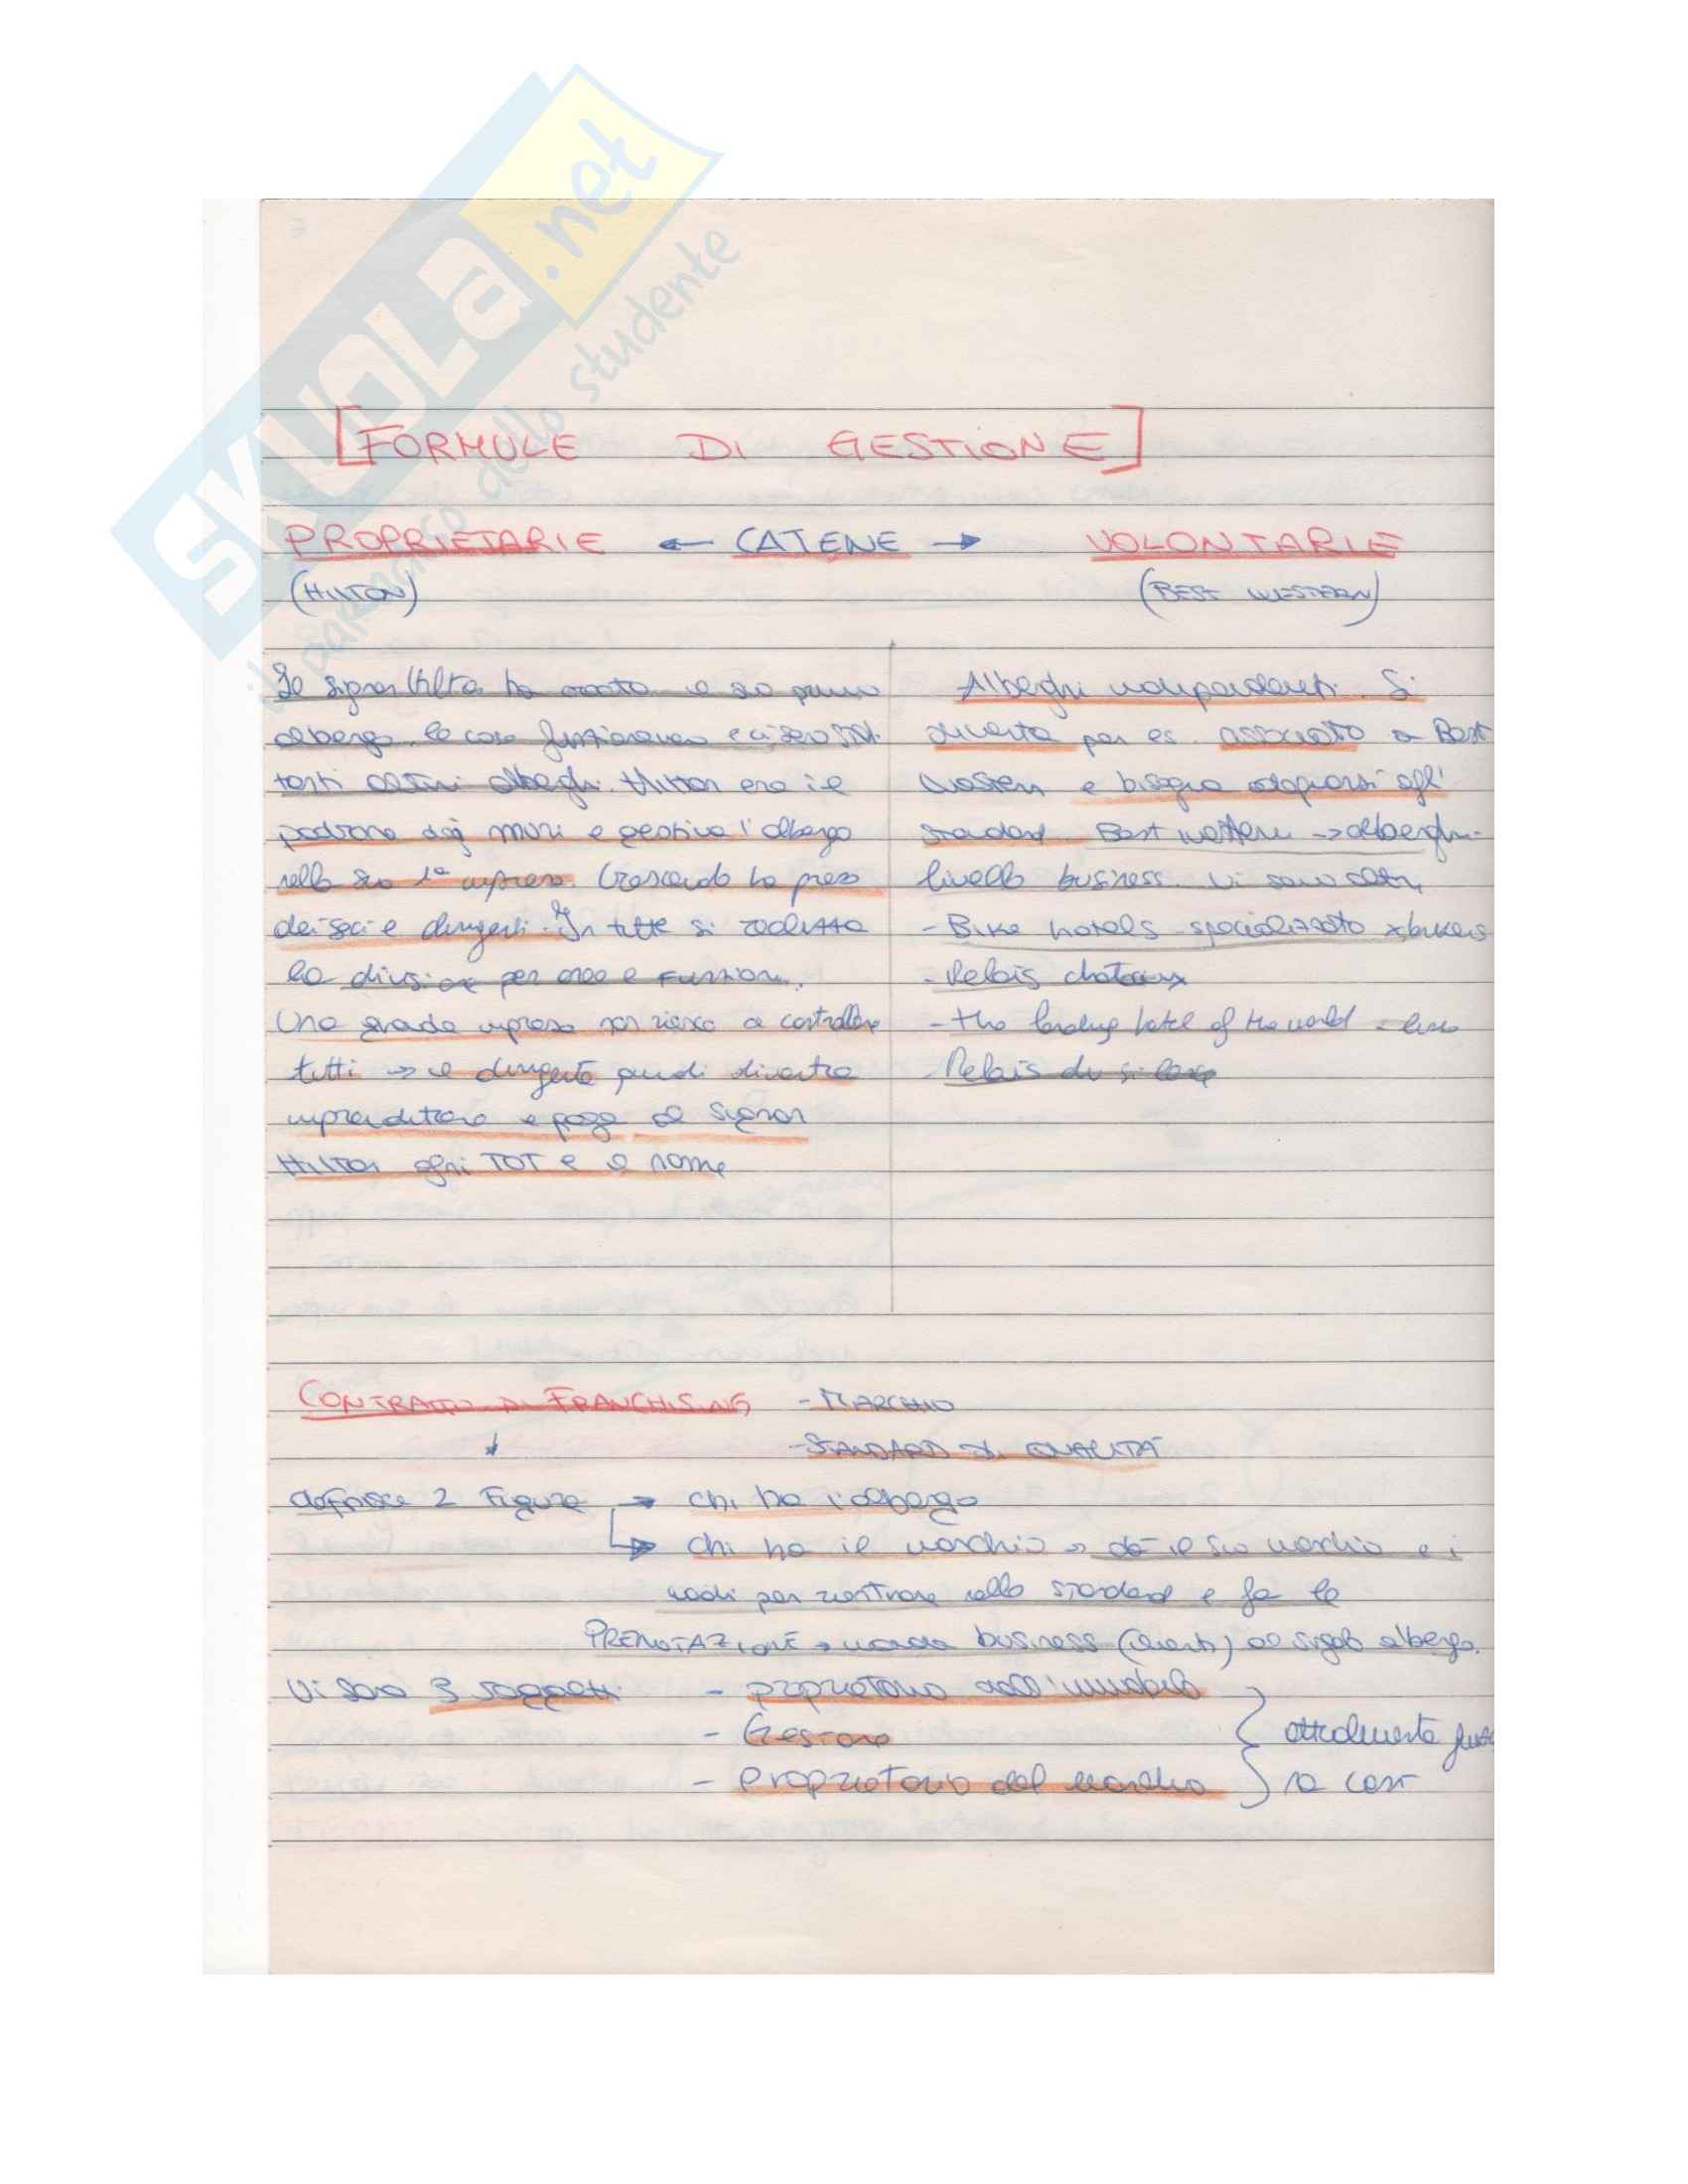 SKUOLA.net
il paradiso dello studente
[FORMULE DI GESTIONE]
PROPRIETARIE ← CATENE → VOLONTARIE
(HILTON) (BEST WESTERN)
Il signor Hilton ha creato il suo primo
albergo, la cosa funzionava e ci sono stati
tanti altri alberghi. Hilton era il
padrone dei muri e gestiva l'albergo
nella sua 1ª impresa. Crescendo ha preso
dei soci e dirigenti. In tutte si
la divisione per aree e funzioni.
Una grande impresa non riesce a controllare
tutti → il dirigente quindi diventa
imprenditore e paga al signor
Hilton ogni TOT e il nome
Alberghi indipendenti. Si
diventa per es. associato a Best
Western e bisogna adeguarsi agli
standard Best Western → alberghi
livello business. Vi sono altri,
- Bike hotels specializzato x bikers
- Relais chateaux
- the leading hotel of the world =
- Relais du silence
CONTRATTO DI FRANCHISING - MARCHIO
↓ - STANDARD DI QUALITÀ
definisce 2 figure → chi ha l'albergo
→ chi ha il marchio → dà il suo marchio e i
modi per rientrare nello standard e fa le
PRENOTAZIONE → manda business (clienti) al singolo albergo.
Vi sono 3 soggetti - proprietario dell'immobile
- Gestore
- proprietario del marchio
attualmente